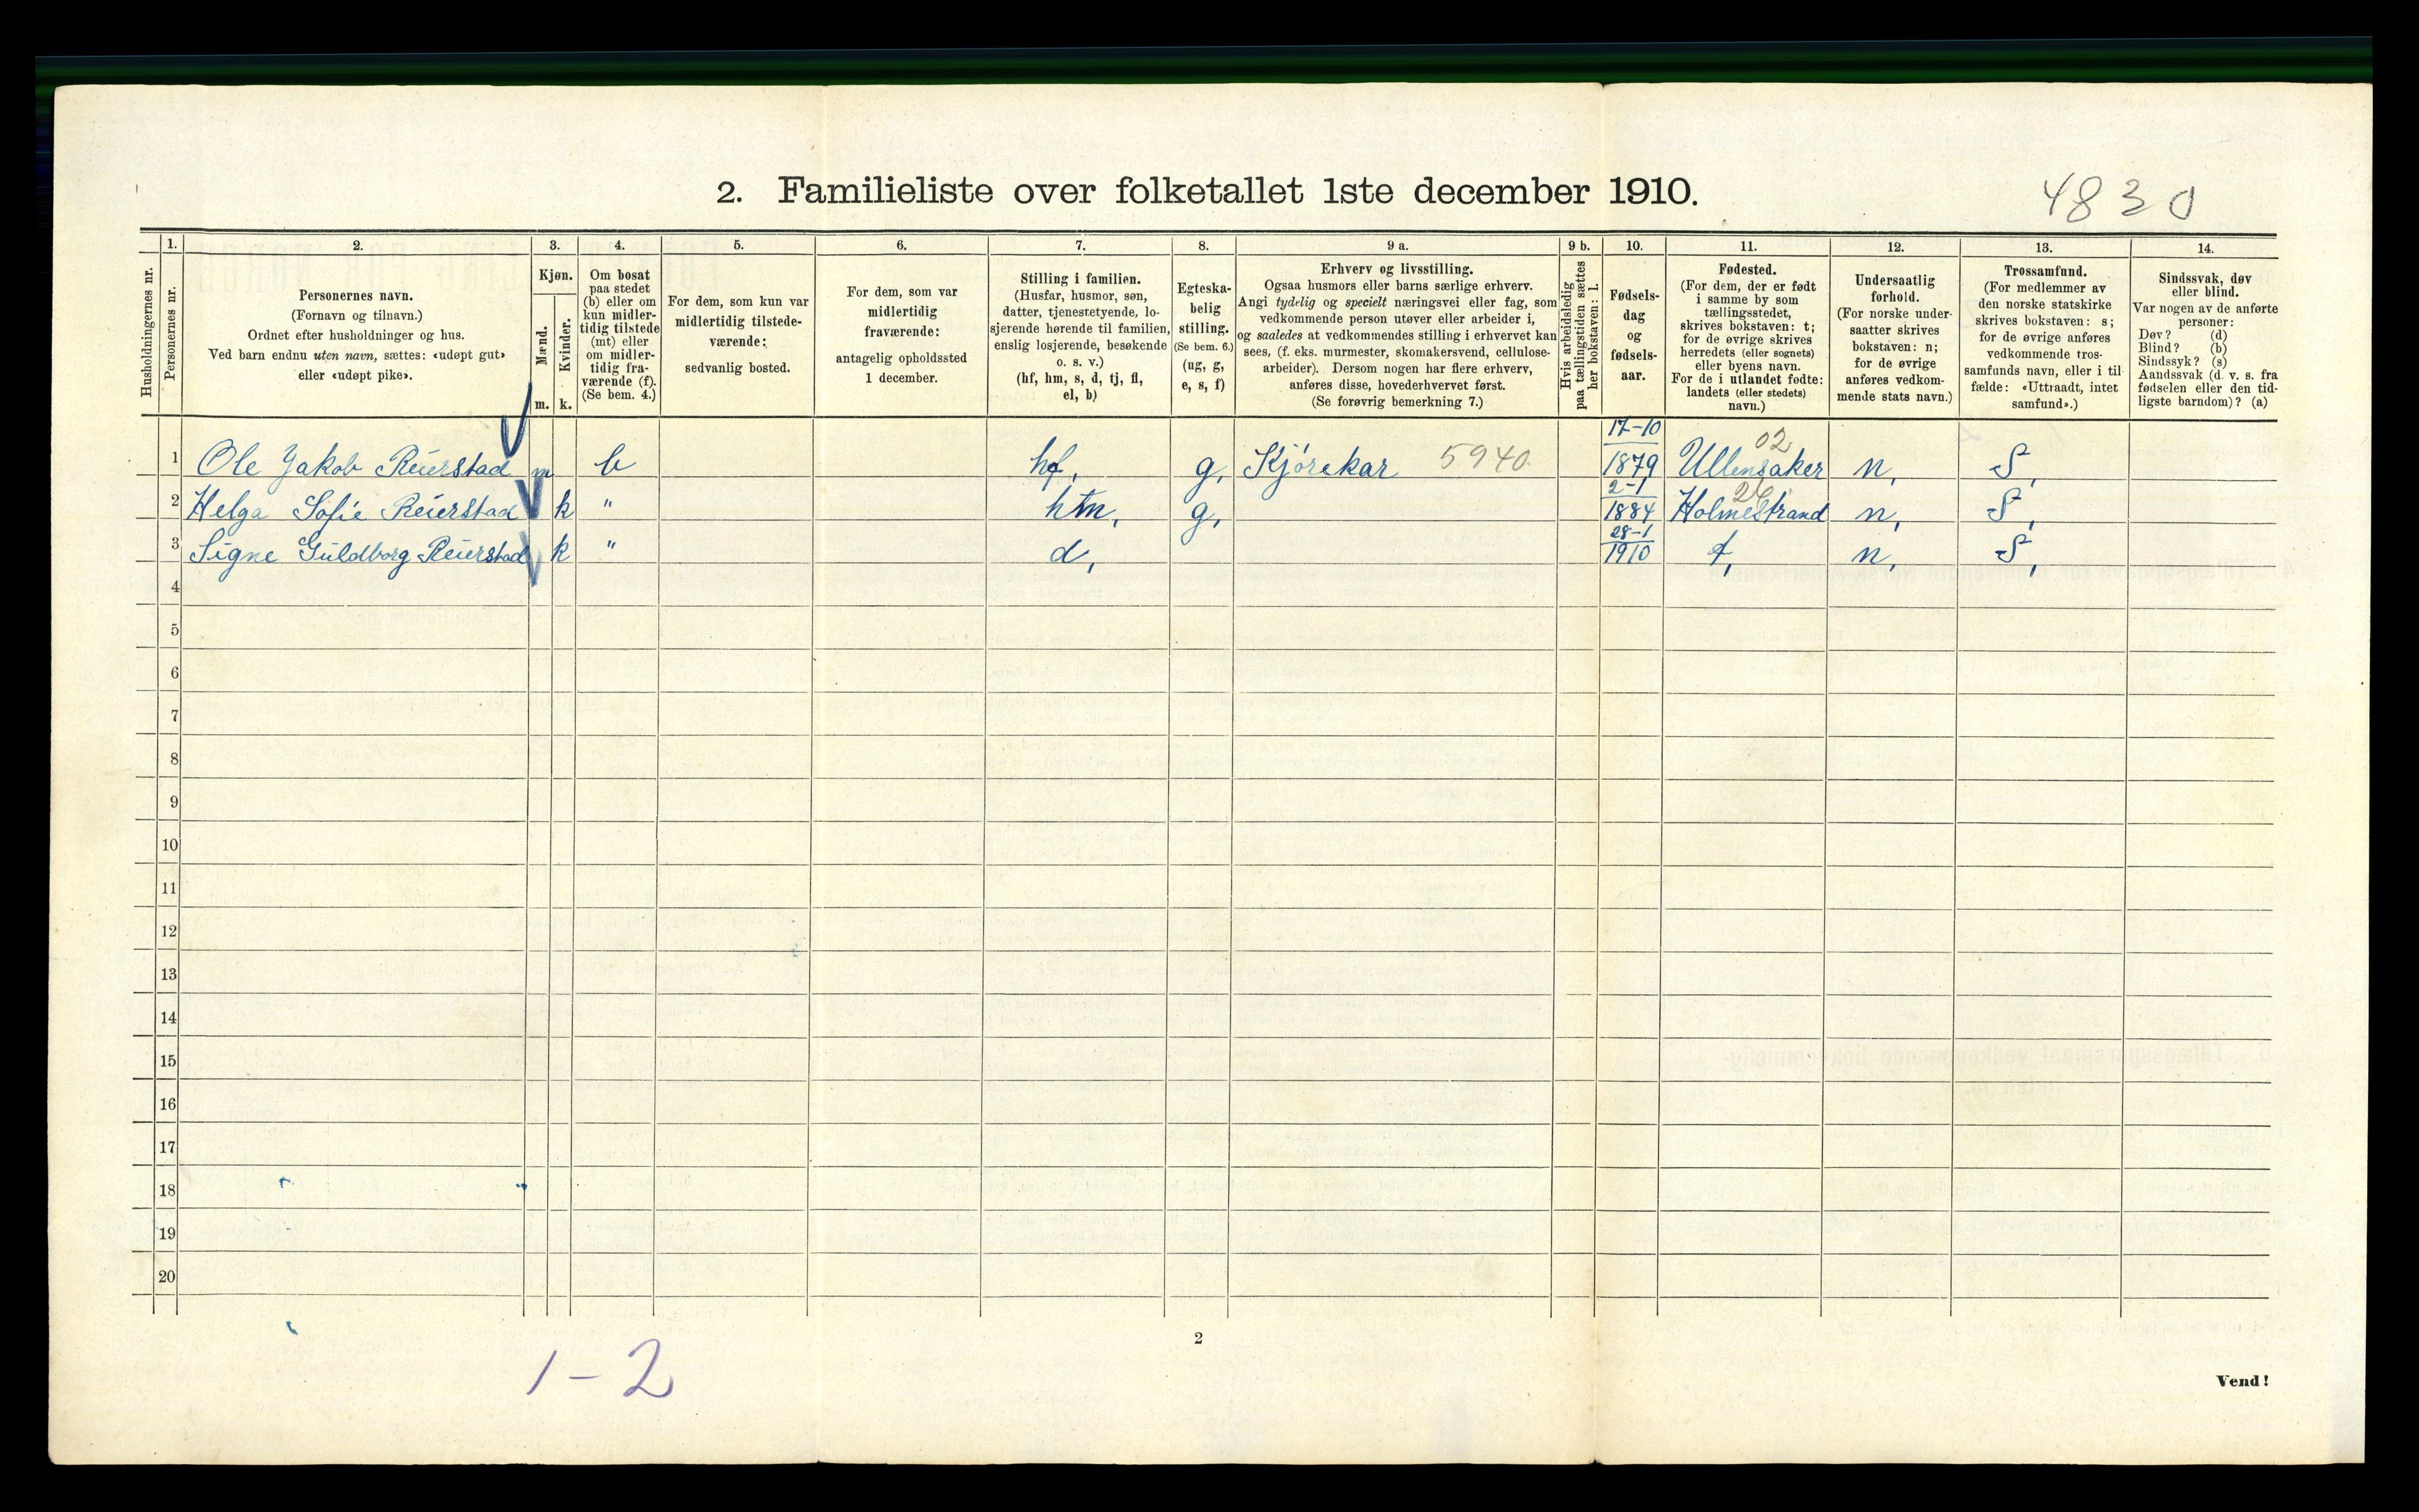 2. Familieliste over folketallet 1ste december 1910.
4830
Husholdningernes nr.
1.
Personernes nr.
2.
Personernes navn.
(Fornavn og tilnavn.)
Ordnet efter husholdninger og hus.
Ved barn endnu uten navn, sættes: «udøpt gut»
eller «udøpt pike».
3.
Kjøn.
Mænd.
m.
Kvinder.
k.
4.
Om bosat
paa stedet
(b) eller om
kun midler-
tidig tilstede
(mt) eller
om midler-
tidig fra-
værende (f).
(Se bem. 4.)
5.
For dem, som kun var
midlertidig tilstede-
værende:
sedvanlig bosted.
6.
For dem, som var
midlertidig
fraværende:
antagelig opholdssted
1 december.
7.
Stilling i familien.
(Husfar, husmor, søn,
datter, tjenestetyende, lo-
sjerende hørende til familien,
enslig losjerende, besøkende
o. s. v.)
(hf, hm, s, d, tj, fl,
el, b)
8.
Egteska-
belig
stilling.
(Se bem. 6.)
(ug, g,
e, s, f)
9 a.
Erhverv og livsstilling.
Ogsaa husmors eller barns særlige erhverv.
Angi tydelig og specielt næringsvei eller fag, som
vedkommende person utøver eller arbeider i,
og saaledes at vedkommendes stilling i erhvervet kan
sees, (f. eks. murmester, skomakersvend, cellulose-
arbeider). Dersom nogen har flere erhverv,
anføres disse, hovederhvervet først.
(Se forøvrig bemerkning 7.)
9 b.
Hvis arbeidsledig
paa tællingstiden sættes
her bokstaven: l.
10.
Fødsels-
dag
og
fødsels-
aar.
11.
Fødested.
(For dem, der er født
i samme by som
tællingsstedet,
skrives bokstaven: t;
for de øvrige skrives
herredets (eller sognets)
eller byens navn.
For de i utlandet fødte:
landets (eller stedets)
navn.)
12.
Undersaatlig
forhold.
(For norske under-
saatter skrives
bokstaven: n;
for de øvrige
anføres vedkom-
mende stats navn.)
13.
Trossamfund.
(For medlemmer av
den norske statskirke
skrives bokstaven: s;
for de øvrige anføres
vedkommende tros-
samfunds navn, eller i til-
fælde: «Uttraadt, intet
samfund».)
14.
Sindssvak, døv
eller blind.
Var nogen av de anførte
personer:
Døv? (d)
Blind? (b)
Sindssyk? (s)
Aandssvak (d. v. s. fra
fødselen eller den tid-
ligste barndom)? (a)
1 Ole Jakob Reierstad m b hf, g, Kjørekar 5940 17-10 1879 Ullensaker 02 n, S,
2 Helga Sofie Reierstad k " hm, g, 2-1 1884 Holmestrand n, S,
3 Signe Guldborg Reierstad k " d, 28-1 1910 t, n, S,
4
5
6
7
8
9
10
11
12
13
14
15
16
17
18
19
20
2
1-2
Vend!